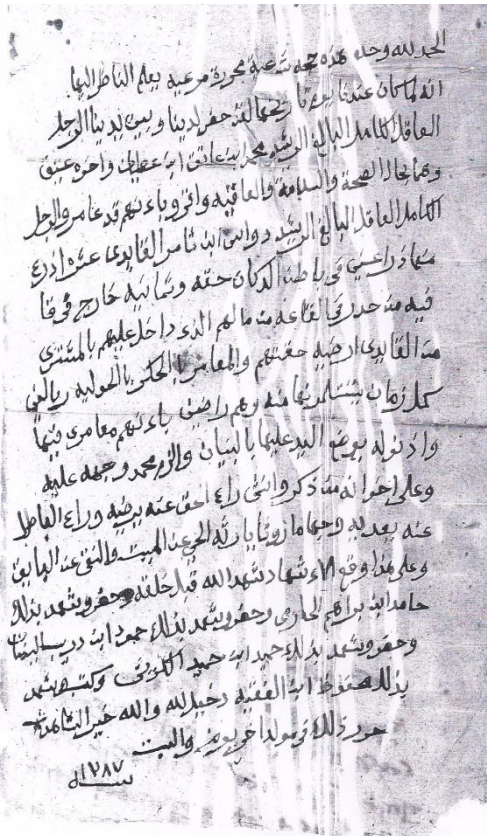 الحمد لله وحده هذه حجه شرعية محررة مرعيه يعلم الناظر اليها
انه لما كان عندنا يوم تاريخها لقد حضر لدينا وبين يدينا الرجل
العاقل الكامل البالغ الرشيد محمد ابن عاتق ابن عطيه واخوه عتيق
وهما بحال الصحة والسلامة والعافيه واقروا باءنهم قد عامروا الرجل
الكامل العاقل البالغ الرشيد دواس ابن ثامر القايدى عشرة اذرع
منها ذراعين في باطن الدكان حقه وثمانيه خارج فوقا
فيه من حدر في القاعه من مالهم الذي داخل عليهم بالمشترى
من القايدى ارضيه حقتهم والمعامر بالحكر بالحوليه ريالين
كمل زمان يستلمونها منه وهم راضين باءنهم معامرى فيها
واذنوله بوضع اليد عليها بالبنيان والزم محمد وجهه عليه
وعلى اخوانه من ذكر وانثى راع الحق عنه يرضيه وراع الباطل
عنه يعديه وجيها ما روثا يارثه الحي عن الميت والنقي عن البايق
وعلى هذا وقع الاءشهاد شهد الله قبل خلقه وحضر وشهد بذلك
حامد ابن براهيم الحازمي وحضر وشهد بذلك حمود ابن دريب
وحضر وشهد بذلك حميد ابن حميد وكتبه وشهد
بذلك ابن الفقيه دخيل لله والله خير الشاهدين
حرر ذلك في مولد اخر يوم
سنة ١٢٨٧